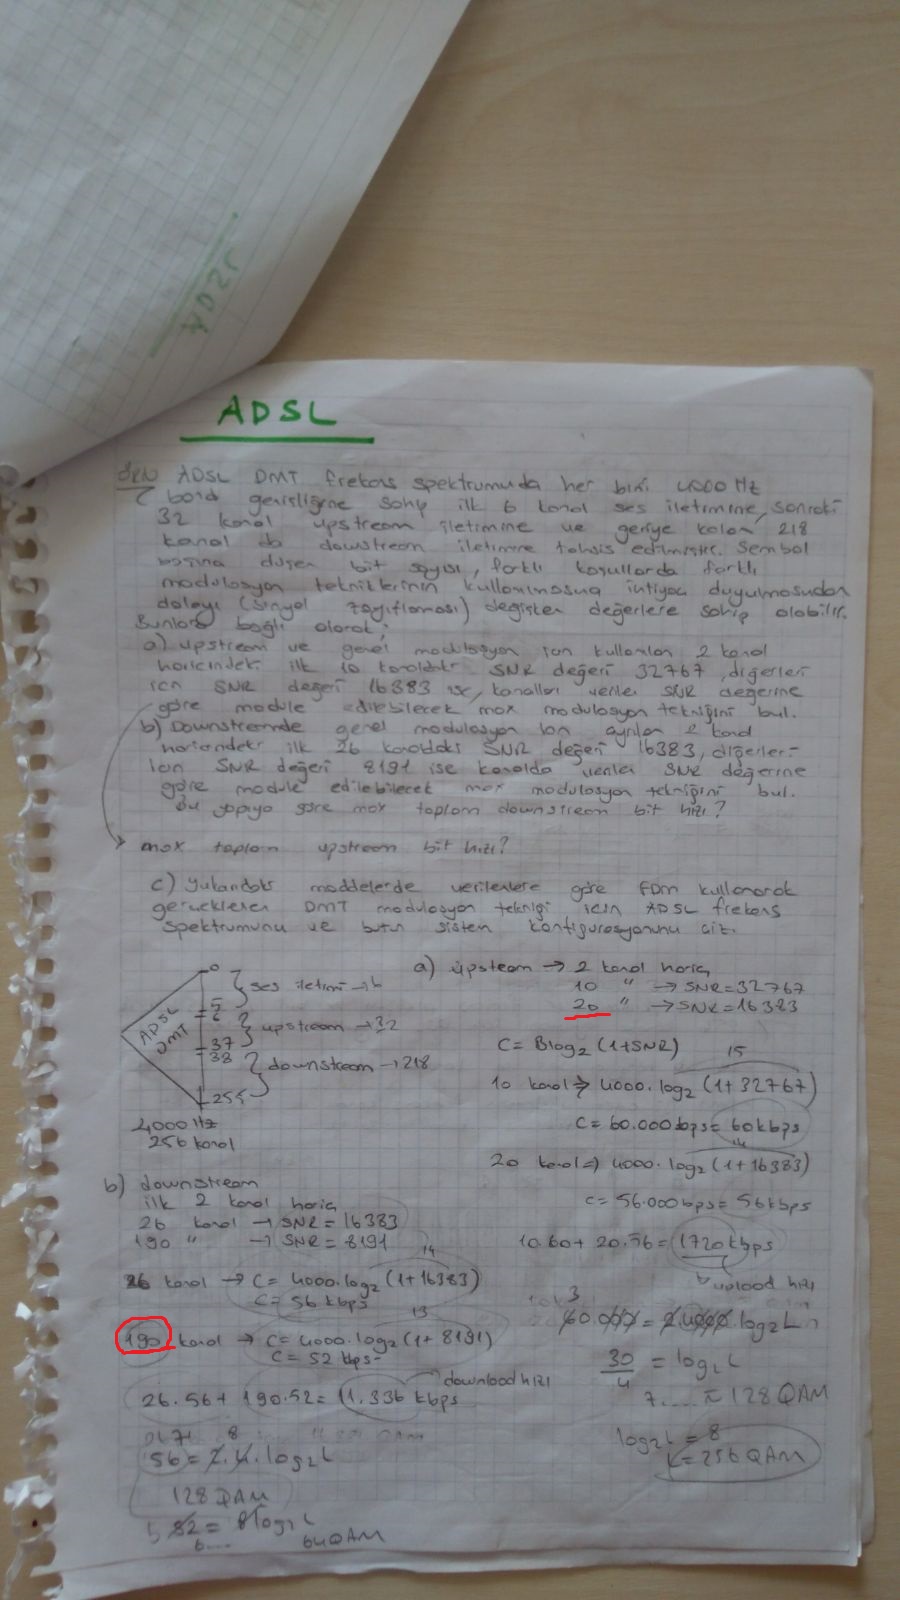 VDSL
ADSL
ÖRN ADSL DMT frekans spektrumuda her biri 4000 Hz
band genişliğine sahip ilk 6 kanal ses iletimine, sonraki
32 kanal upstream iletimine ve geriye kalan 218
kanal da dowstream iletimine tahsis edilmiştir. Sembol
başına düşen bit sayısı, farklı koşullarda farklı
modulasyon tekniklerinin kullanılmasına ihtiyaç duyulmasından
dolayı (sinyal zayıflaması) değişken değerlere sahip olabilir.
Bunlara bağlı olarak;
a) upstream ve genel modulasyon için kullanılan 2 kanal
haricindeki ilk 10 kanaldaki SNR değeri 32767, diğerleri
icin SNR değeri 16383 ise, kanalları verilen SNR değerine
göre module edilebilecek max modulasyon tekniğini bul.
b) Downstreamde genel modulasyon icin ayrılan 2 kanal
haricindeki ilk 26 kanaldaki SNR değeri 16383, diğerler-
icin SNR değeri 8191 ise kanalda verilen SNR değerine
göre module edilebilecek max modulasyon tekniğini bul.
Bu yapıya göre max toplam downstream bit hızı?
max toplam upstream bit hızı?
c) Yukarıdaki maddelerde verilenlere göre FDM kullanarak
gerçeklenen DMT modulasyon tekniği icin ADSL frekans
spektrumunu ve butun sistem konfigurasyonunu çiz.
0
5
6
37
38
255
ADSL DMT
ses iletimi → 6
upstream → 32
downstream → 218
4000 Hz
256 kanal
a) Upsteam → 2 kanal hariç
10 " → SNR = 32767
20 " → SNR = 16383
C = B log2 (1+SNR)
15
10 kanal ⇒ 4000. log2 (1+32767)
C = 60.000 bps = 60 kbps
14
20 kanal ⇒ 4000. log2 (1+16383)
C = 56.000 bps = 56 kbps
10.60 + 20.56 = 1720 kbps
upload hızı
3
60.000 = 2.4000 log2 L
30/4 = log2 L
7..... ≈ 128 QAM
log2 L = 8
L = 256 QAM
b) downstream
ilk 2 kanal hariç
26 kanal → SNR = 16383
190 " → SNR = 8191
14
26 kanal → C = 4000. log2 (1+16383)
C = 56 kbps
13
190 kanal → C = 4000. log2 (1+ 8191)
C = 52 kbps
26.56 + 190.52 = 11.336 kbps
download hızı
7 8
56 = 2.4. log2 L
128 QAM
52 = 8 log2 L
6.... 64 QAM